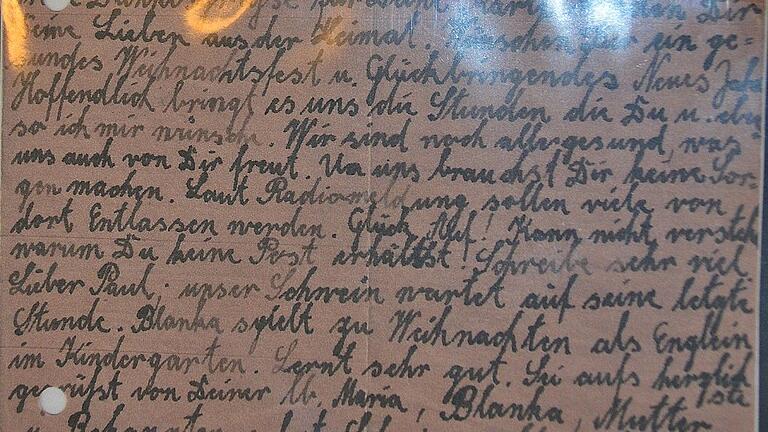 Dir
Deine Lieben aus der Heimat. Wünschen Dir ein ge-
sundes Weihnachtsfest u. Glückbringendes Neues Jahr
Hoffendlich bringt es uns die Stunden die Du u. eben
so ich mir wünsche. Wir sind noch alle gesund, was
uns auch von Dir freut. Um uns brauchst Dir keine Sor-
gen machen. Laut Radiomeldung sollen viele von
dort Entlassen werden. Glück Auf! Kann nicht versteh
warum Du keine Post erhältst! Schreibe sehr viel
Lieber Paul, unser Schwein wartet auf seine letzte
Stunde. Blanka spielt zu Weihnachten als Englein
im Kindergarten. Lernt sehr gut. Sei aufs herzlich
ste
gegrüßt von Deiner lb. Maria, Blanka, Mutter
u. Bekannten